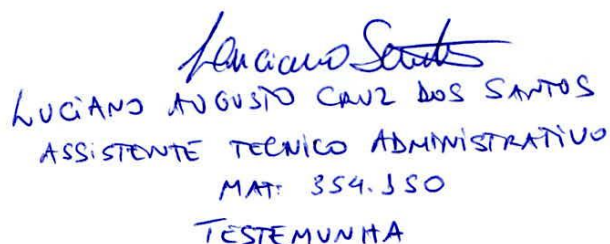 Luciano Santos
LUCIANO AUGUSTO CRUZ DOS SANTOS
ASSISTENTE TECNICO ADMINISTRATIVO
MAT: 354.150
TESTEMUNHA